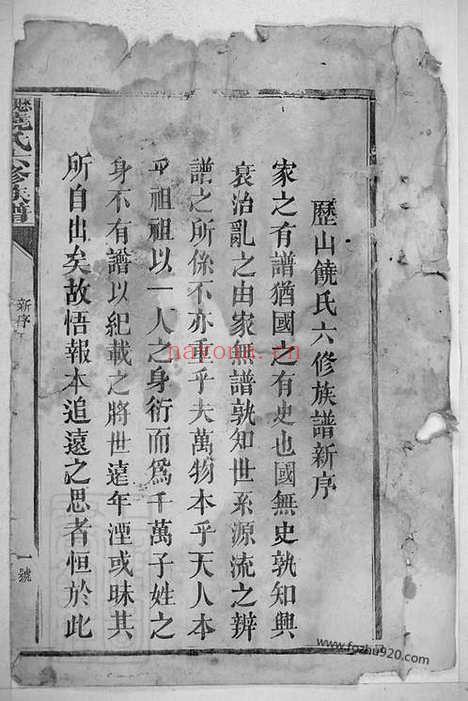 歷山饒氏六修族譜新序
家之有譜猶國之有史也國無史孰知興
衰治亂之由家無譜孰知世系源流之辨
譜之所係不亦重乎夫萬物本乎天人本
乎祖祖以一人之身衍而為千萬子姓之
身不有譜以紀載之將世遠年湮或昧其
所自出矣故悟報本追遠之思者恒於此
饒氏六修族譜
新序
一號
nayona.cn
www.fozhu920.com